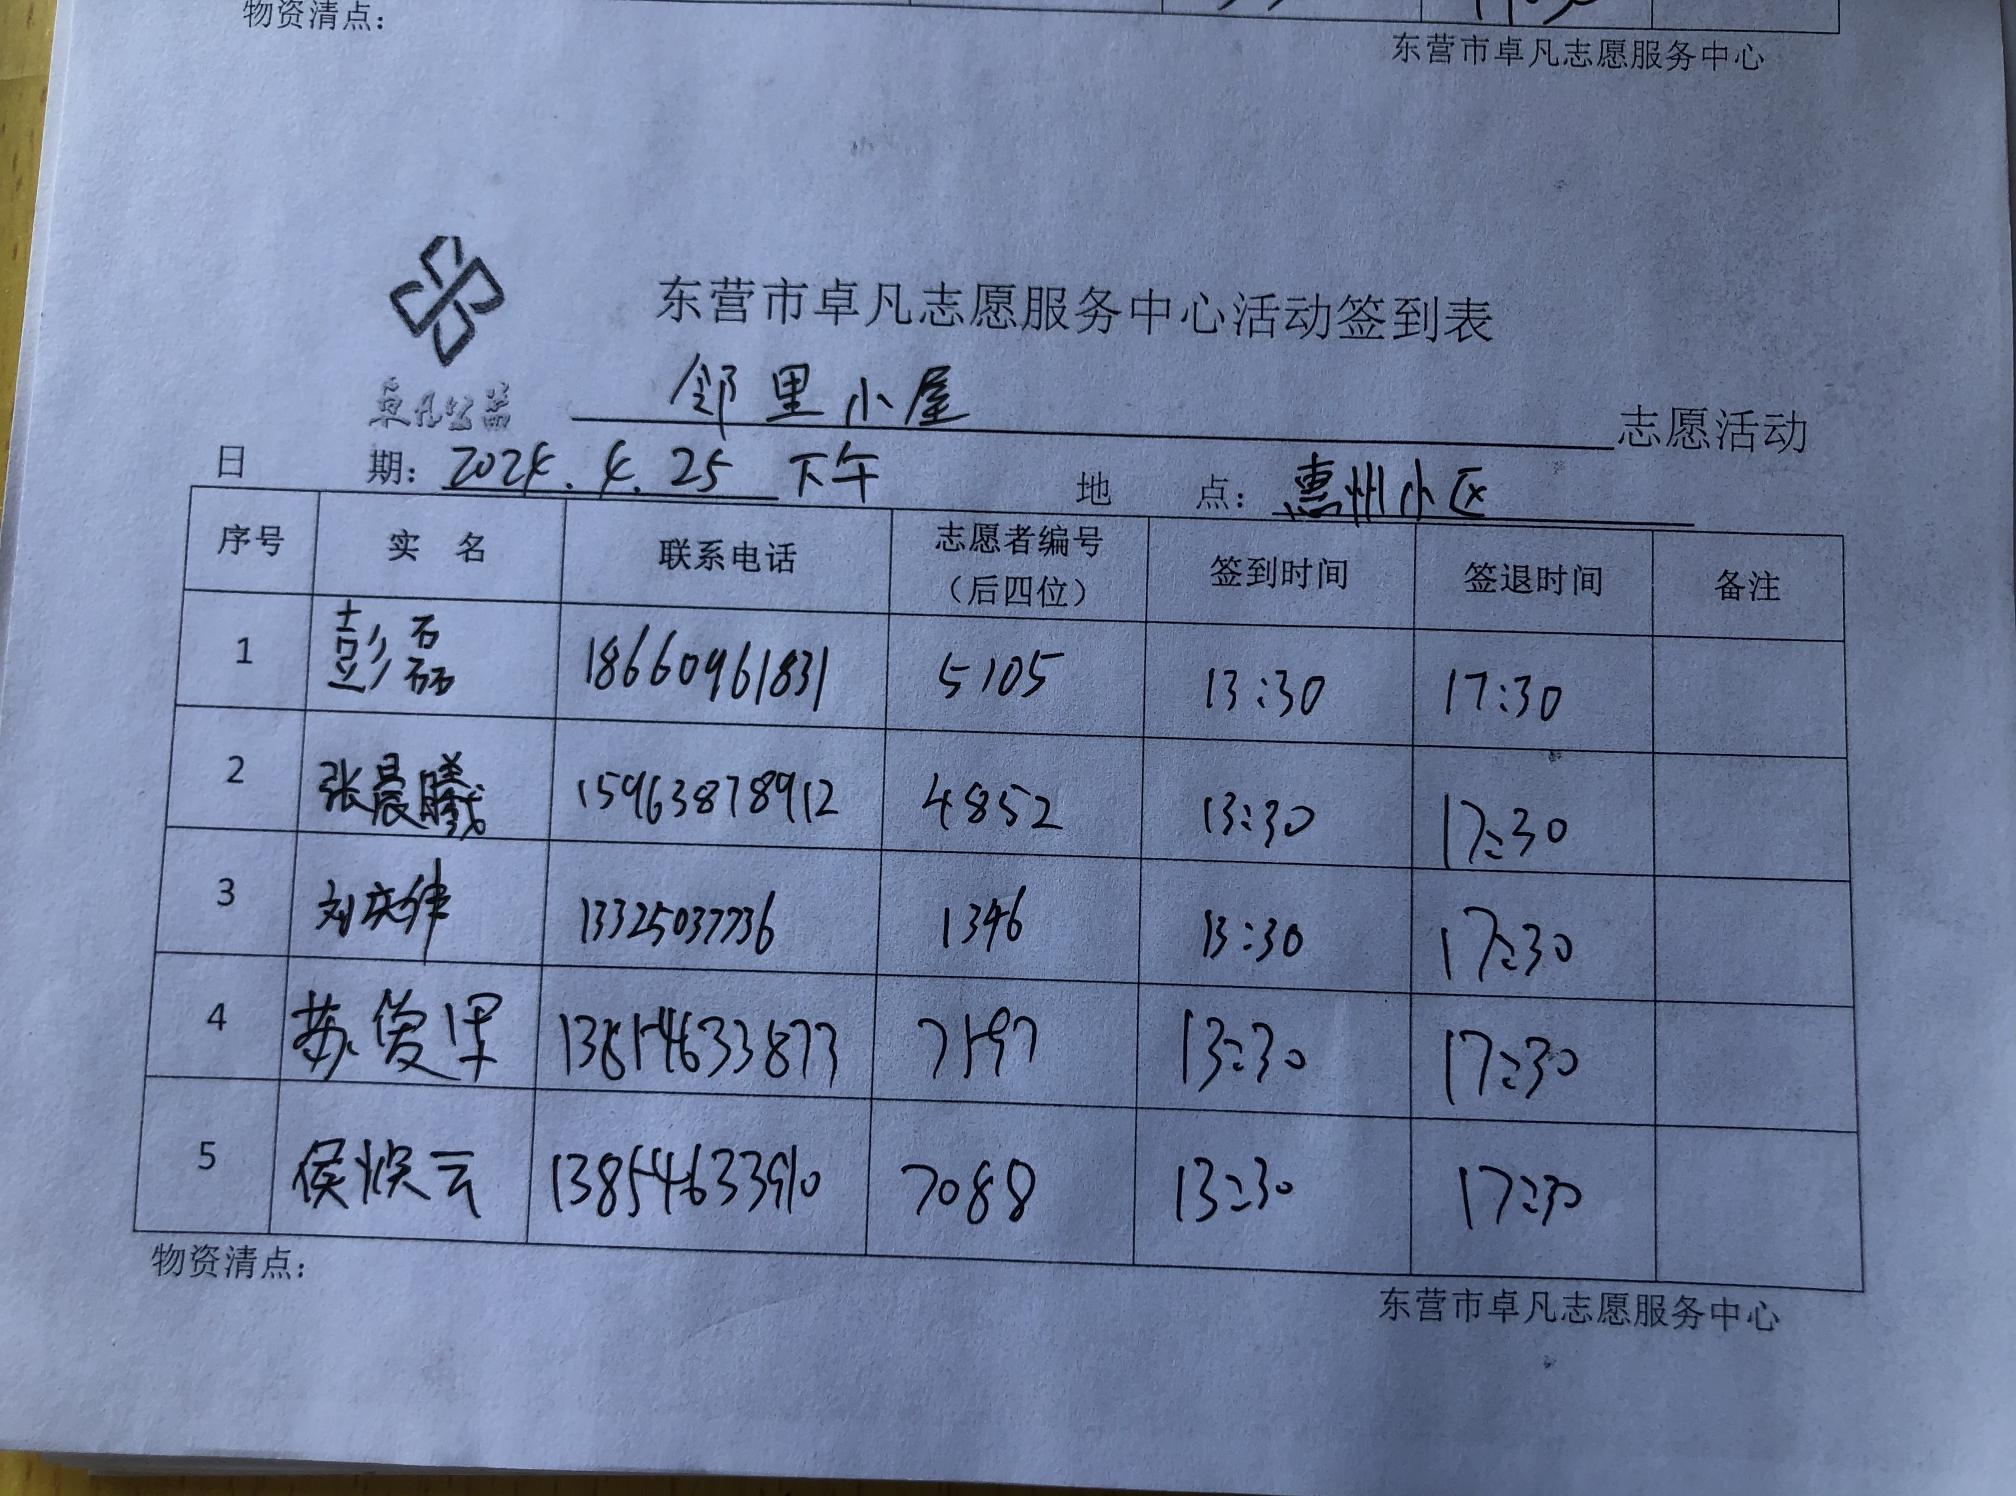 物资清点：
东营市卓凡志愿服务中心
东营市卓凡志愿服务中心活动签到表
卓凡公益
邻里小屋 志愿活动
日 期：2024.4.25 下午 地 点：惠州小区
序号 实 名 联系电话 志愿者编号（后四位） 签到时间 签退时间 备注
1 彭磊 18660961831 5105 13:30 17:30
2 张晨曦 15963878912 4852 13:30 17:30
3 刘庆伟 13325037736 1346 13:30 17:30
4 苏俊果 7197 13:30 17:30
5 侯焕云 13854633910 7088 13:30 17:30
物资清点：
东营市卓凡志愿服务中心